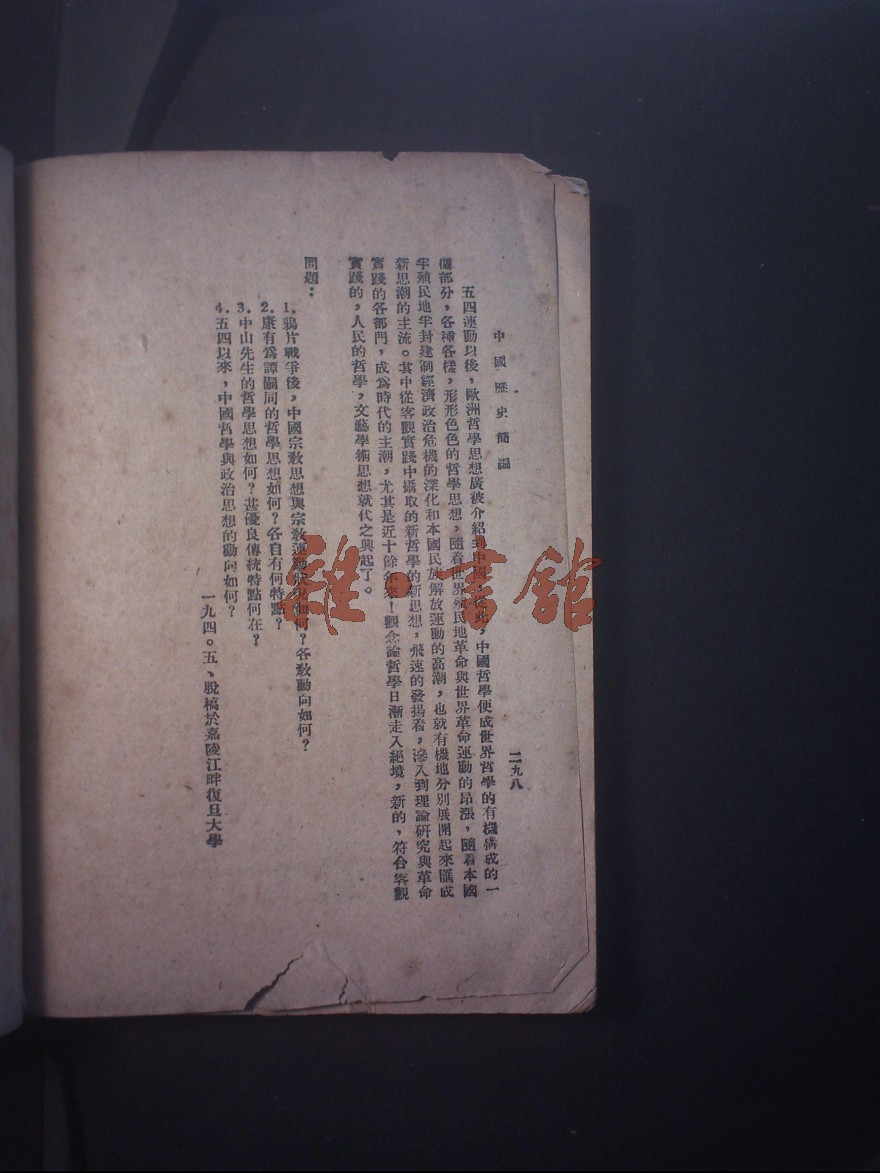 中國歷史簡編
二九八
五四運動以後，歐洲哲學思想廣被介紹到中國，從此，中國哲學便成世界哲學的有機構成的一
個部分，各種各樣，形形色色的哲學思想，隨着世界殖民地革命與世界革命運動的昂漲，隨着本國
半殖民地半封建制經濟政治危機的深化和本國民族解放運動的高潮，也就有機地分別展開起來匯成
新思潮的主流。其中從客觀實踐中攝取的新哲學的新思想，飛速的發揚着，滲入到理論研究與革命
實踐的各部門，成爲時代的主潮，尤其是近十餘年來！觀念論哲學日漸走入絕境，新的，符合客觀
實踐的，人民的哲學，文藝學術思想就代之興起了。
問題：
1.鴉片戰爭後，中國宗敎思想與宗敎運動狀況如何？各敎動向如何？
2.康有爲譚嗣同的哲學思想如何？各自有何特點？
3.中山先生的哲學思想如何？甚優良傳統特點何在？
4.五四以來，中國哲學與政治思想的動向如何？
一九四〇五、脫稿於嘉陵江畔復旦大學
雜·書館